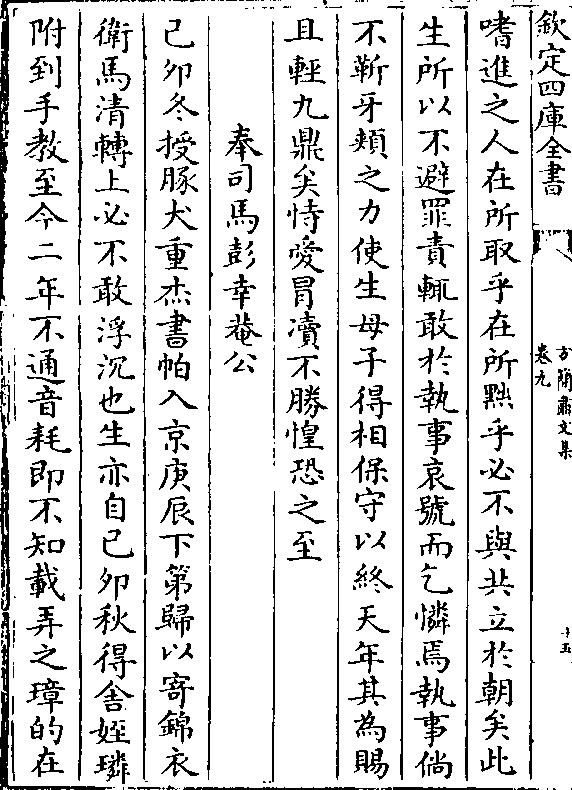 欽定四庫全書
方簡肅文集
卷九
十五
嗜進之人在所取乎在所黜乎必不與共立於朝矣此
生所以不避罪責輒敢於執事哀號而乞憐焉執事倘
不靳牙頰之力使生母子得相保守以終天年其為賜
且輕九鼎矣恃愛冒瀆不勝惶恐之至
奉司馬彭幸菴公
己卯冬授豚犬重杰書帕入京庚辰下第歸以寄錦衣
衛馬清轉上必不敢浮沉也生亦自己卯秋得舍姪璘
附到手教至今二年不通音耗即不知載弄之璋的在